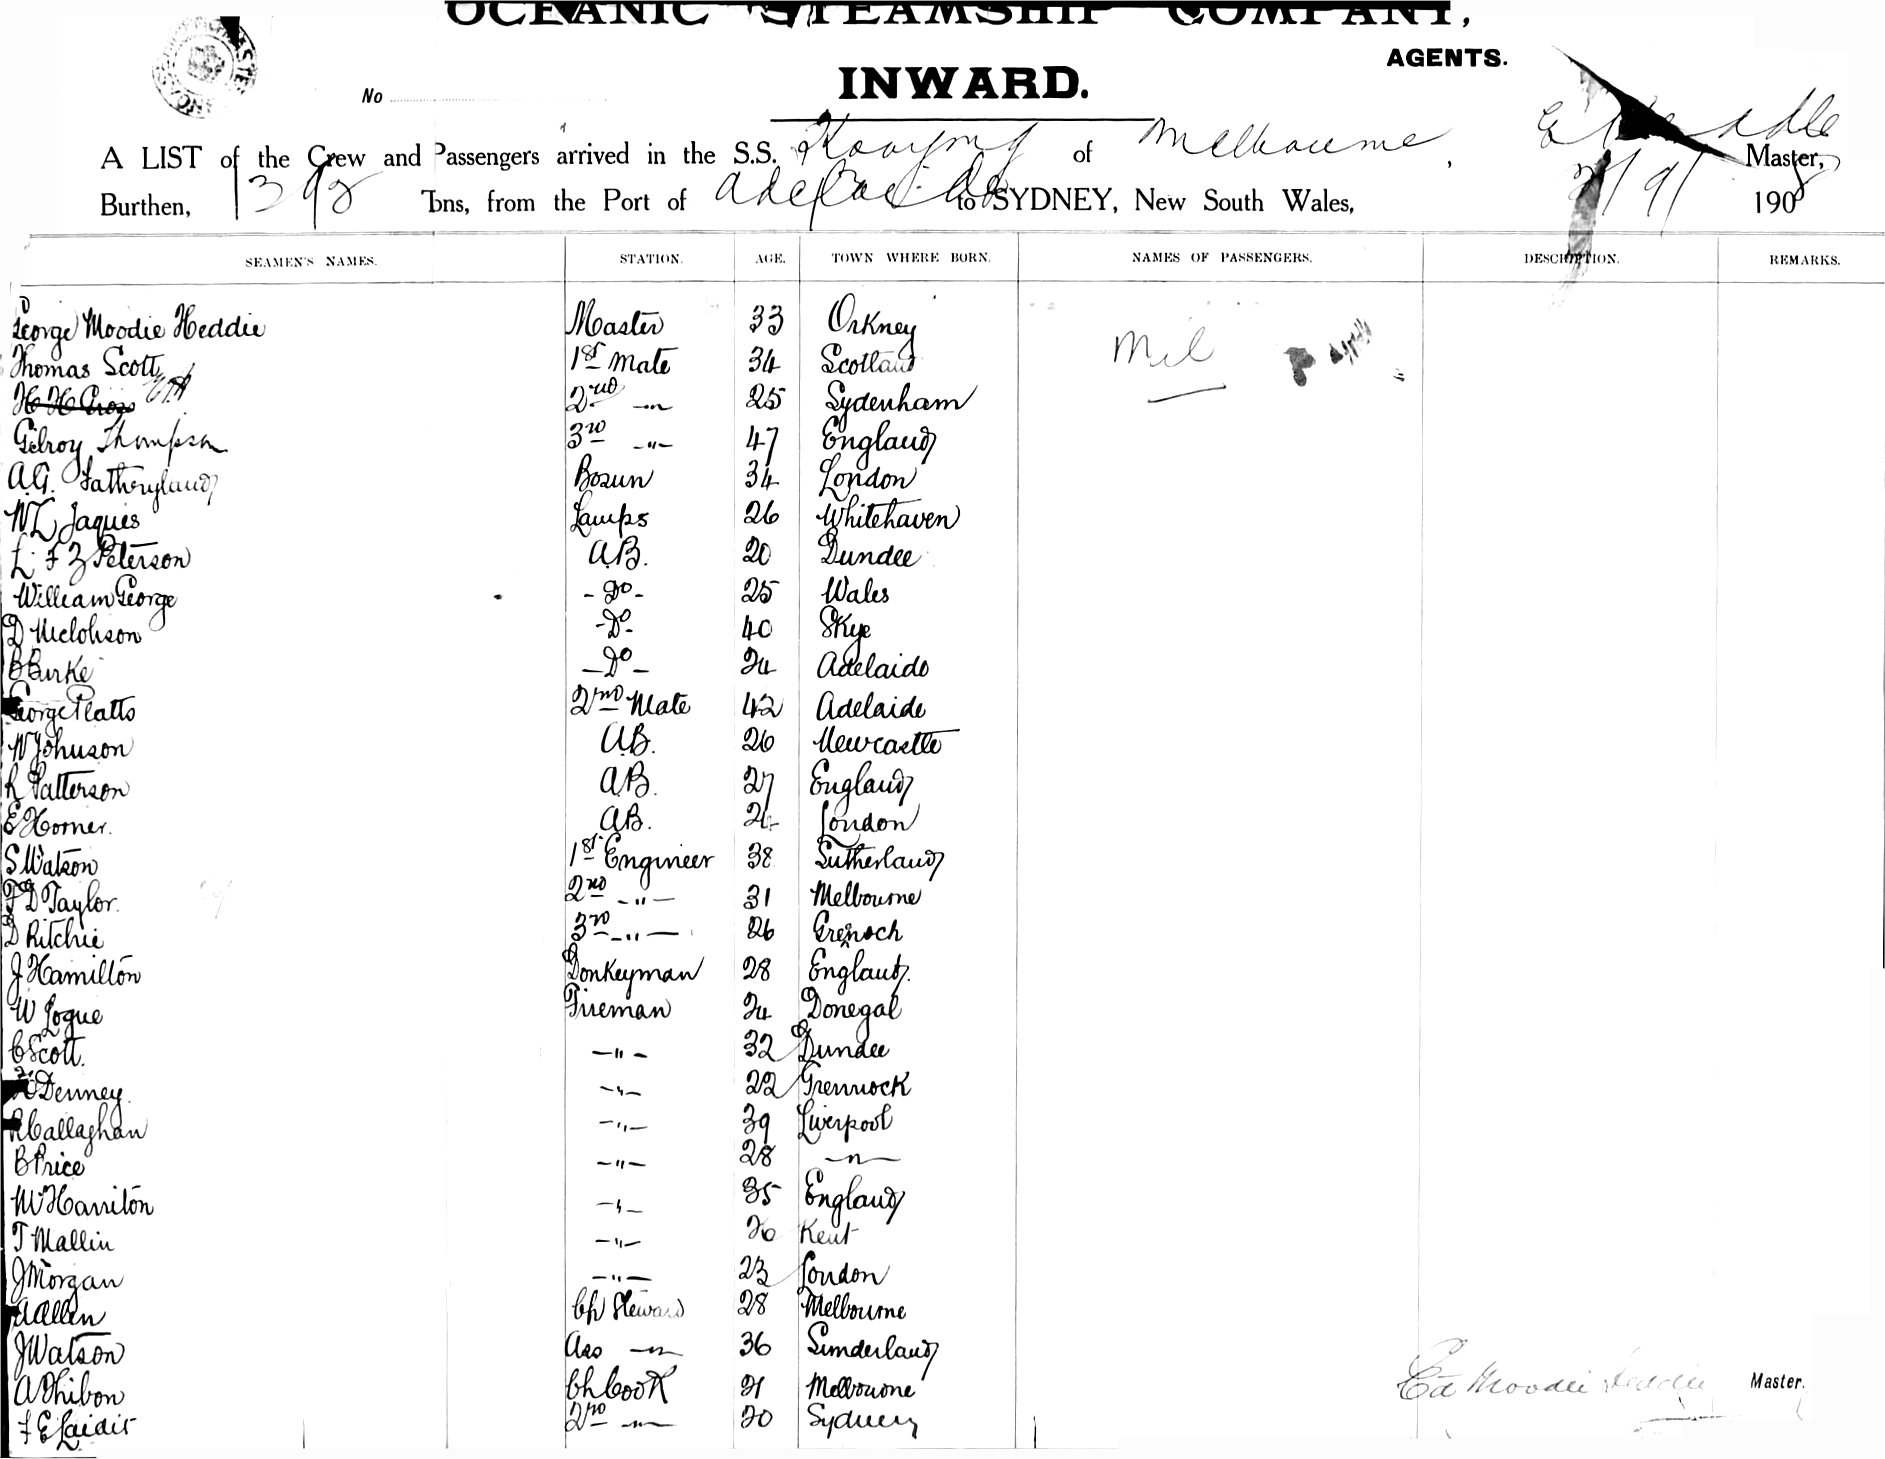 OCEANIC STEAMSHIP COMPANY,
AGENTS.
INWARD.
No
A LIST of the Crew and Passengers arrived in the S.S. Kooyong of Melbourne, Master,
Burthen, 1398 Tons, from the Port of Adelaide to SYDNEY, New South Wales, 2/9/ 1908
SEAMEN'S NAMES. STATION. AGE. TOWN WHERE BORN. NAMES OF PASSENGERS. DESCRIPTION. REMARKS.
George Moodie Heddie Master 33 Orkney
Thomas Scott 1st Mate 34 Scotland Mil
H H Cross 2nd -"- 25 Sydenham
Gilroy Thompson 3rd -"- 47 England
A.G. Fatheryland Bosun 34 London
W L Jaques Lamps 26 Whitehaven
L F Z Peterson A.B. 20 Dundee
William George -Do- 25 Wales
D Nicolson -Do- 40 Skye
B Burke -Do- 24 Adelaide
George Platts 2nd Mate 42 Adelaide
W Johnson A.B. 26 Newcastle
R Patterson A.B. 27 England
E Horner. A.B. 24 London
S Watson 1st Engineer 38 Sutherland
F D Taylor. 2nd -"- 31 Melbourne
D Ritchie 3rd -"- 26 Grenoch
J Hamilton Donkeyman 28 England.
W Logue Fireman 24 Donegal
C Scott. -"- 32 Dundee
Denney. -"- 22 Grennock
R Callaghan -"- 39 Liverpool
B Price -"- 28 -"-
W Harriton -"- 35 England
T Mallin -"- 26 Kent
J Morgan -"- 23 London
A Allen Ch Steward 28 Melbourne
J Watson Ass -"- 36 Sunderland
A Thibon Ch Cook 21 Melbourne
F E Laidit 2nd -"- 20 Sydney
Ed Moodie Heddle Master.